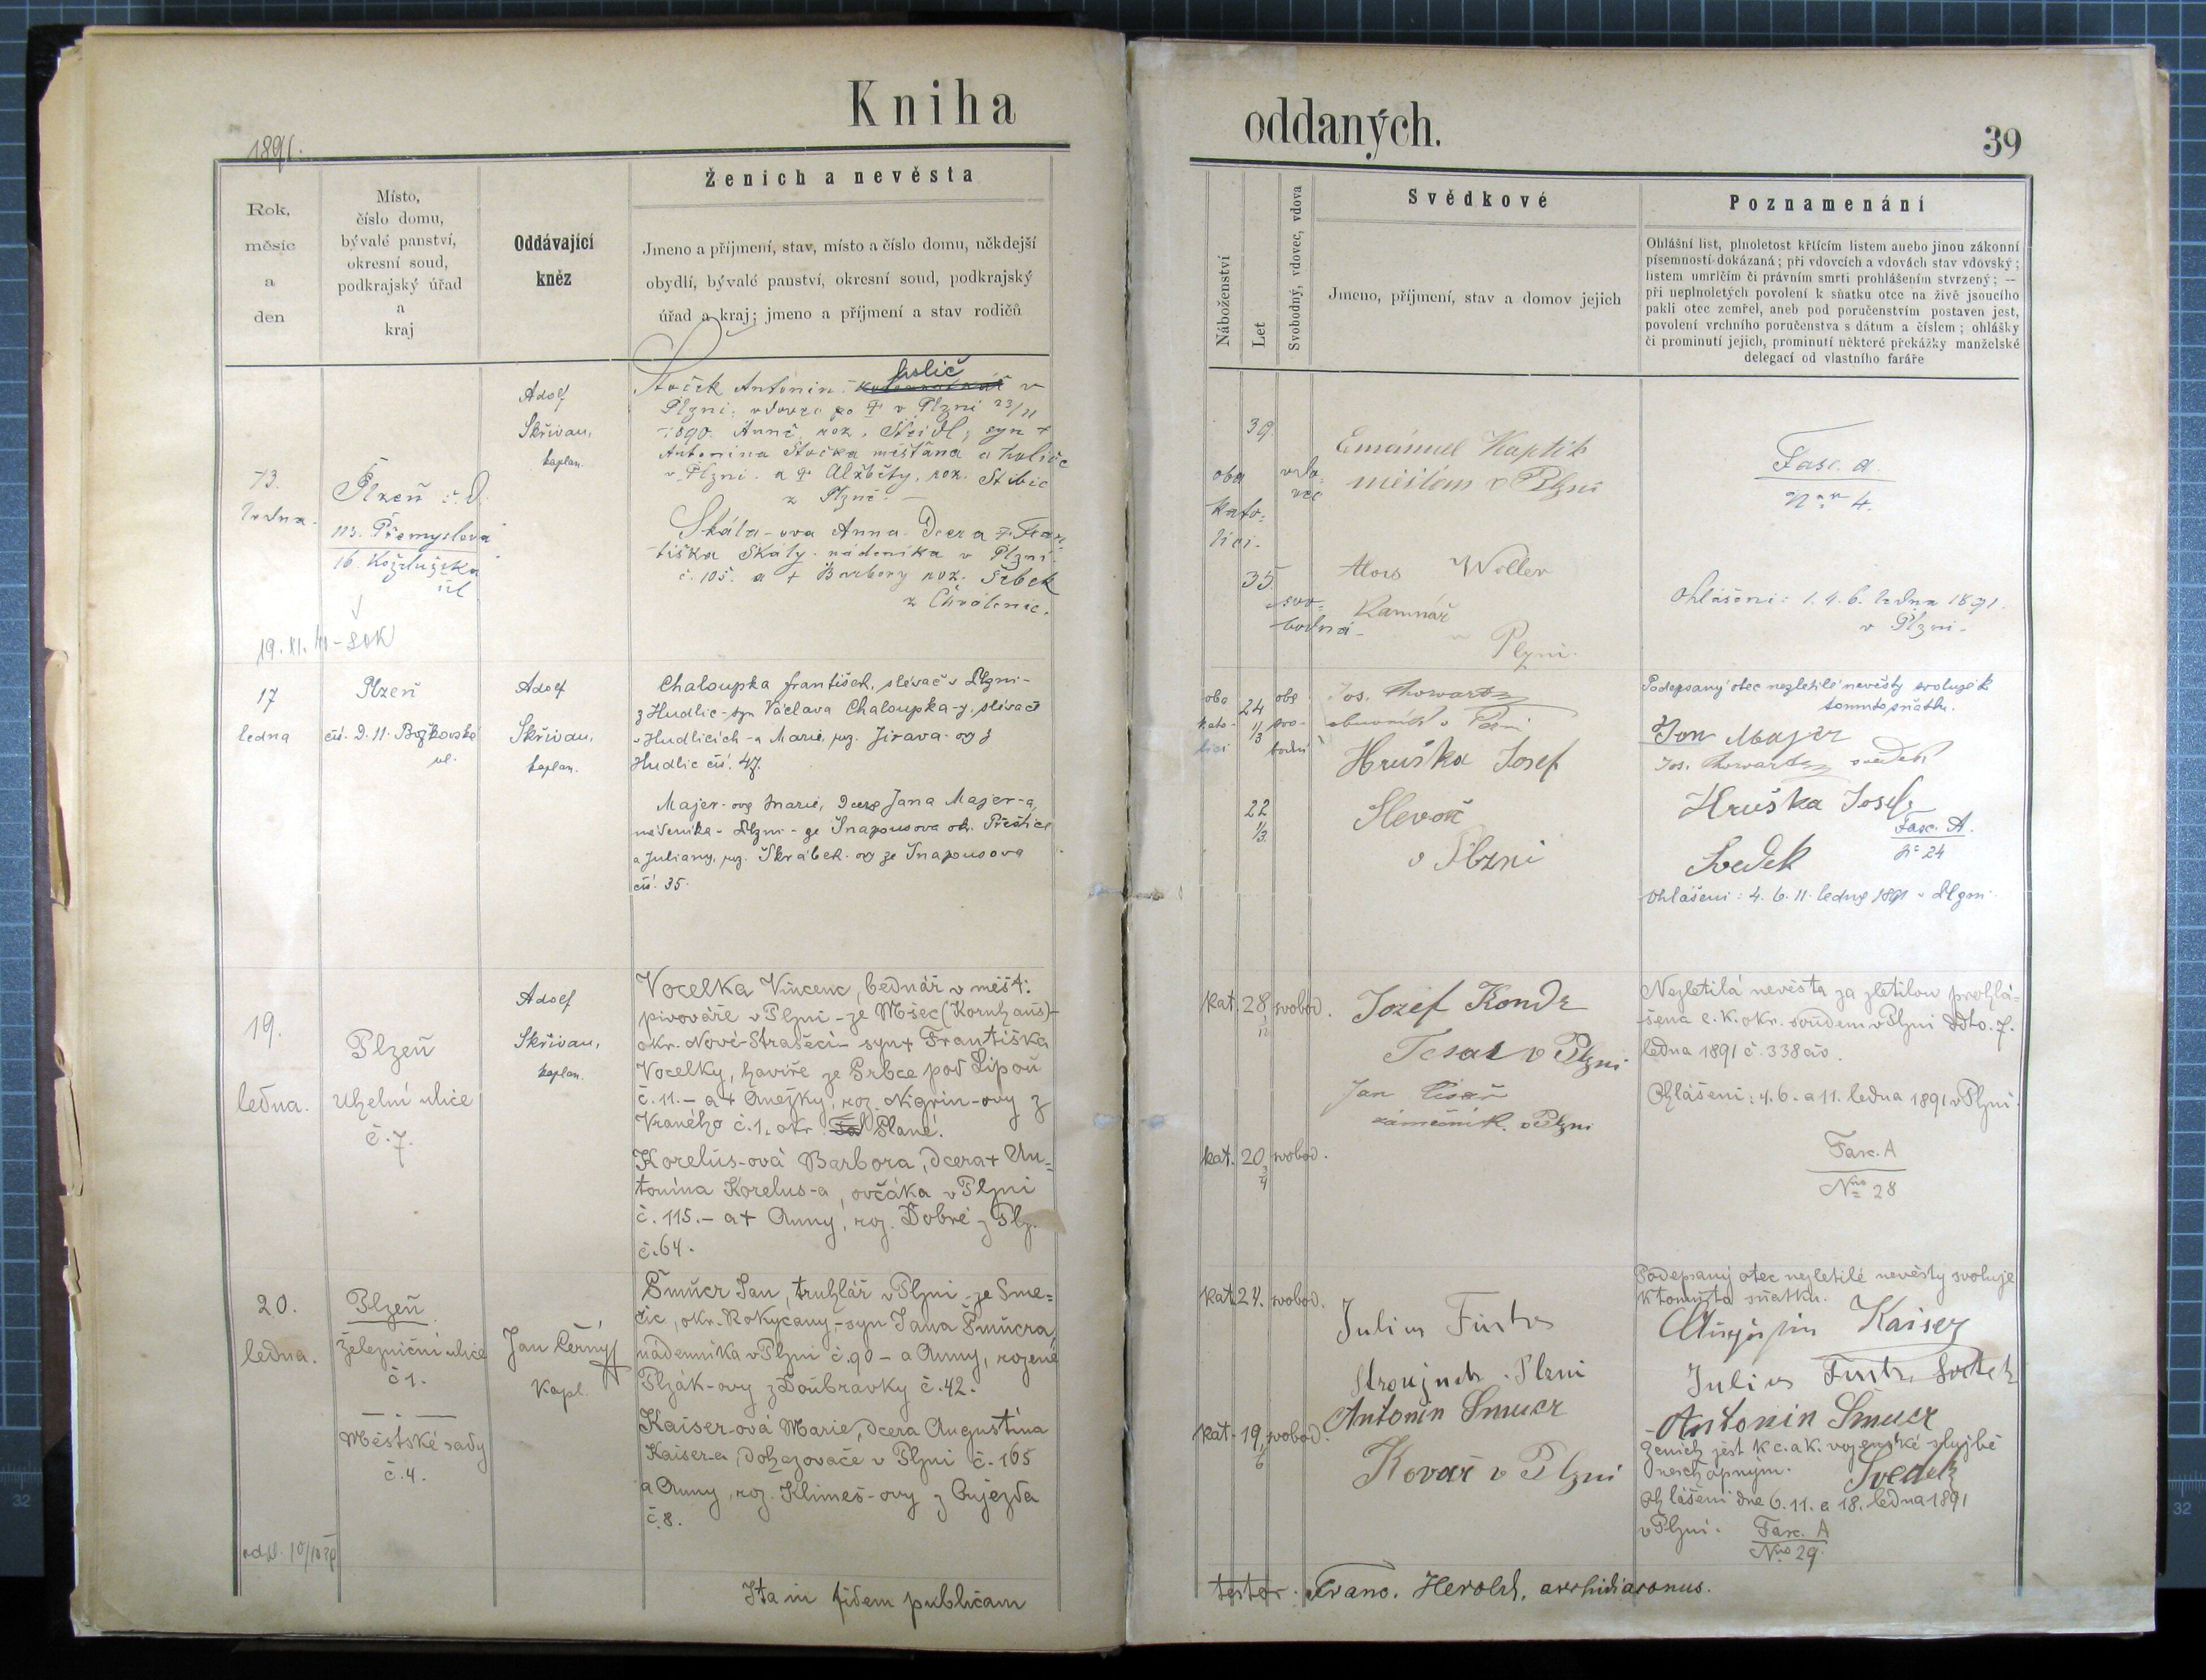 Kniha
oddaných.
39
1891.
Rok,
měsíc
a
den
Místo,
číslo domu,
bývalé panství,
okresní soud,
podkrajský úřad
a
kraj
Oddávající
kněz
Ženich a nevěsta
Jmeno a příjmení, stav, místo a číslo domu, někdejší
obydlí, bývalé panství, okresní soud, podkrajský
úřad a kraj; jmeno a příjmení a stav rodičů
Náboženství
Let
Svobodný, vdovec, vdova
Svědkové
Jmeno, příjmení, stav a domov jejich
Poznamenání
Ohlášní list, plnoletost křtícím listem anebo jinou zákonní
písemností dokázaná; při vdovcích a vdovách stav vdovský;
listem umrlčím či právním smrti prohlášením stvrzený; —
při neplnoletých povolení k sňatku otce na živě jsoucího
pakli otec zemřel, aneb pod poručenstvím postaven jest,
povolení vrchního poručenstva s dátum a číslem; ohlášky
či prominutí jejich, prominutí některé překážky manželské
delegací od vlastního faráře
13.
ledna
Plzeň
113. Přemyslova
16.
19. XI. 40 - SOK
Adolf
Skřivan,
kaplan.
holič
Antonín v
Plzni, vdovec po † v Plzni 23/11
1890. Anně, roz. syn †
Antonína měšťana a holiče
v Plzni a † Alžběty, roz.
z Plzně. —
Skála-ova Anna. Dcera † Fran-
tiška Skály. nádeníka v Plzni
č. 105. a † Barbory roz.
z
oba
kato-
líci.
39.
vdo-
vec
35
svo-
bodná
Emanuel
měšťan v Plzni
Alois Woller
Kamnář
v Plzni.
Fasc. A.
Nro 4.
Ohlášení: 1. 4. 6. ledna 1891.
v Plzni.
17
ledna
Plzeň
čís. D. 11. Božkovská
ul.
Adolf
Skřivan,
kaplan.
Chaloupka František, slévač v Plzni -
z Hudlic - syn Václava Chaloupka-y, slévače
v Hudlicích - a Marie, roz. Jirava-ov z
Hudlic čís. 47.
Majer-ova Marie, dcera Jana Majer-a,
nádeníka v Plzni - ze Snopousova okr. Přeštice
a Juliany, roz. Škrábek-ov ze Snopousova
čís. 35.
oba
kato-
líci
24
1/3
oba
svo-
bodní
22
1/3
Jos.
obuvník v Plzni
Hruška Josef
Slevač
v Plzni
Podepsaný otec nezletilé nevěsty svoluje k
tomuto sňatku.
Jan Majer
Jos. svědek
Hruška Josef
Fasc. A.
No 24
Svedek
Ohlášení: 4. 6. 11. ledna 1891 v Plzni.
19.
ledna.
Plzeň
Uhelní ulice
č. 7.
Adolf
Skřivan,
kaplan.
Vocelka Vincenc, bednář v měšť.
pivováře v Plzni - ze Mšec (Kornhaus) -
okr. Nové-Strašecí - syn † Františka
Vocelky, havíře ze Srbce pod Lipou
č. 11. - a † Anežky, roz. Nigrin-ovy z
Vraného č. 1. okr. Plané.
Korelus-ová Barbora, dcera † An-
tonína Korelus-a, ovčáka v Plzni
č. 115. - a † Anny, roz. Dobré z Plz.
č. 64.
kat. 28 svobod.
kat. 20 3/4 svobod.
Jozef Kondr
Tesař v Plzni
Jan Císař
zámečník. v Plzni
Nezletilá nevěsta za zletilou prohlá-
šena c. k. okr. soudem v Plzni ddto. 7.
ledna 1891 č. 338 civ.
Ohlášení: 4. 6. a 11. ledna 1891 v Plzni.
Fasc. A
Nro 28
20.
ledna.
Plzeň
Železniční ulice
č 1.
Městské sady
č. 4.
Jan Černý
Kapl.
Šmucr Jan, truhlář v Plzni - ze Sme-
čic, okr. Rokycany, - syn Jana Šmucra,
nádenníka v Plzni č. 90 - a Anny, rozené
Plzák-ovy z Doubravky č. 42.
Kaiser-ová Marie, dcera Augustina
Kaiser-a, dohazovače v Plzni č. 165
a Anny, roz. Klimeš-ovy z Oujezda
č. 8.
kat. 24. svobod.
kat. 19 1/6 svobod.
Julius
Plzni
Antonin Smucr
Kovař v Plzni
Podepsaný otec nezletilé nevěsty svoluje
k tomuto sňatku.
Kaiser
Julius
Antonin Smucr
Ženich jest k c. a k. vojenské službě
neschopným.
Svedek
Ohlášení dne 6. 11. a 18. ledna 1891
v Plzni.
Fasc. A
Nro 29.
Ita in fidem publicam
testor: Franc. Herold, archidiaconus.
32
32